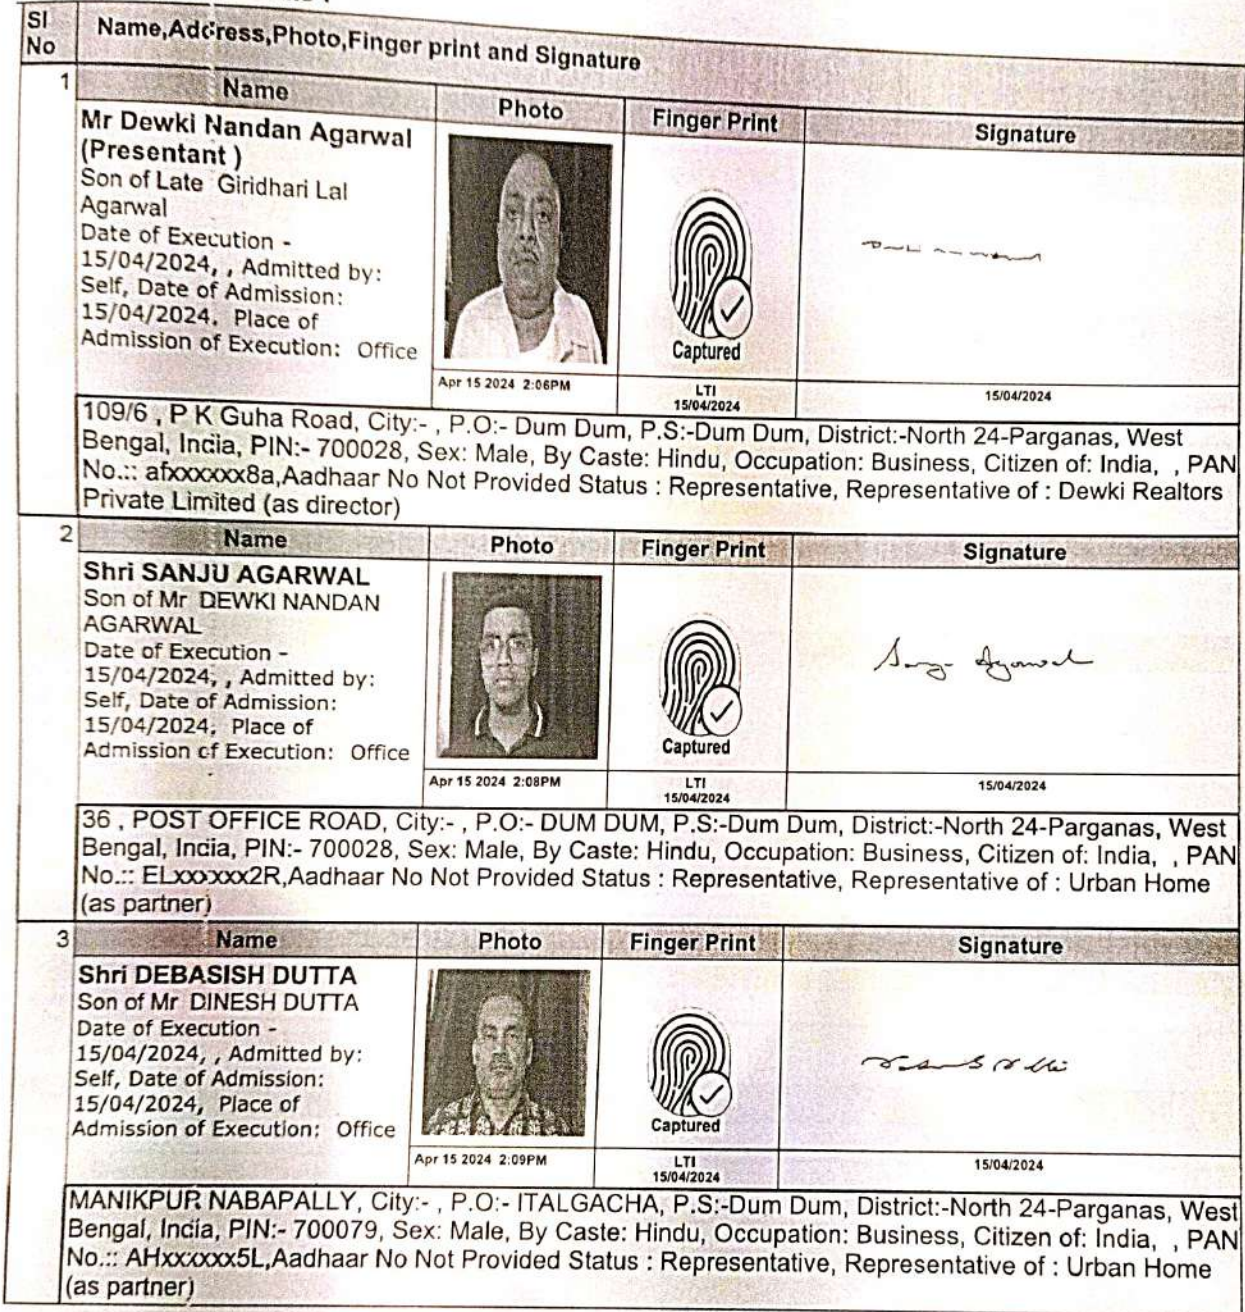 Sl No
Name,Address,Photo,Finger print and Signature
1
Name
Photo
Finger Print
Signature
Mr Dewki Nandan Agarwal
(Presentant )
Son of Late Giridhari Lal
Agarwal
Date of Execution -
15/04/2024, , Admitted by:
Self, Date of Admission:
15/04/2024, Place of
Admission of Execution: Office
Captured
Apr 15 2024 2:06PM
LTI
15/04/2024
15/04/2024
109/6 , P K Guha Road, City:- , P.O:- Dum Dum, P.S:-Dum Dum, District:-North 24-Parganas, West
Bengal, India, PIN:- 700028, Sex: Male, By Caste: Hindu, Occupation: Business, Citizen of: India, , PAN
No.:: afxxxxxx8a,Aadhaar No Not Provided Status : Representative, Representative of : Dewki Realtors
Private Limited (as director)
2
Name
Photo
Finger Print
Signature
Shri SANJU AGARWAL
Son of Mr DEWKI NANDAN
AGARWAL
Date of Execution -
15/04/2024, , Admitted by:
Self, Date of Admission:
15/04/2024, Place of
Admission of Execution: Office
Captured
Sanju Agarwal
Apr 15 2024 2:08PM
LTI
15/04/2024
15/04/2024
36 , POST OFFICE ROAD, City:- , P.O:- DUM DUM, P.S:-Dum Dum, District:-North 24-Parganas, West
Bengal, India, PIN:- 700028, Sex: Male, By Caste: Hindu, Occupation: Business, Citizen of: India, , PAN
No.:: ELxxxxxx2R,Aadhaar No Not Provided Status : Representative, Representative of : Urban Home
(as partner)
3
Name
Photo
Finger Print
Signature
Shri DEBASISH DUTTA
Son of Mr DINESH DUTTA
Date of Execution -
15/04/2024, , Admitted by:
Self, Date of Admission:
15/04/2024, Place of
Admission of Execution: Office
Captured
Apr 15 2024 2:09PM
LTI
15/04/2024
15/04/2024
MANIKPUR NABAPALLY, City:- , P.O:- ITALGACHA, P.S:-Dum Dum, District:-North 24-Parganas, West
Bengal, India, PIN:- 700079, Sex: Male, By Caste: Hindu, Occupation: Business, Citizen of: India, , PAN
No.:: AHxxxxxx5L,Aadhaar No Not Provided Status : Representative, Representative of : Urban Home
(as partner)